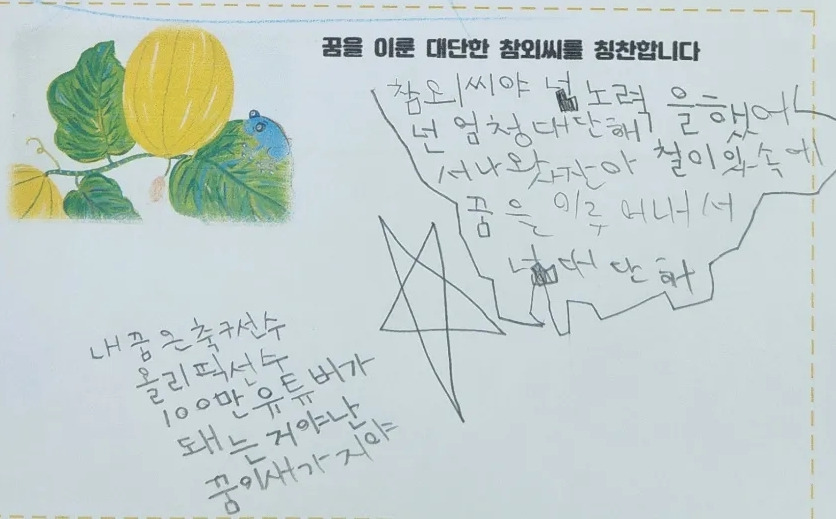 꿈을 이룬 대단한 참외씨를 칭찬합니다
참외씨야 넌 노력을했어
넌 엄청대단해
서나왔잖아 철이와속에
꿈을이루어내서
넌대단해
내꿈은축구선수
올리픽선수
100만유튜버가
돼는거야난
꿈이새가지야